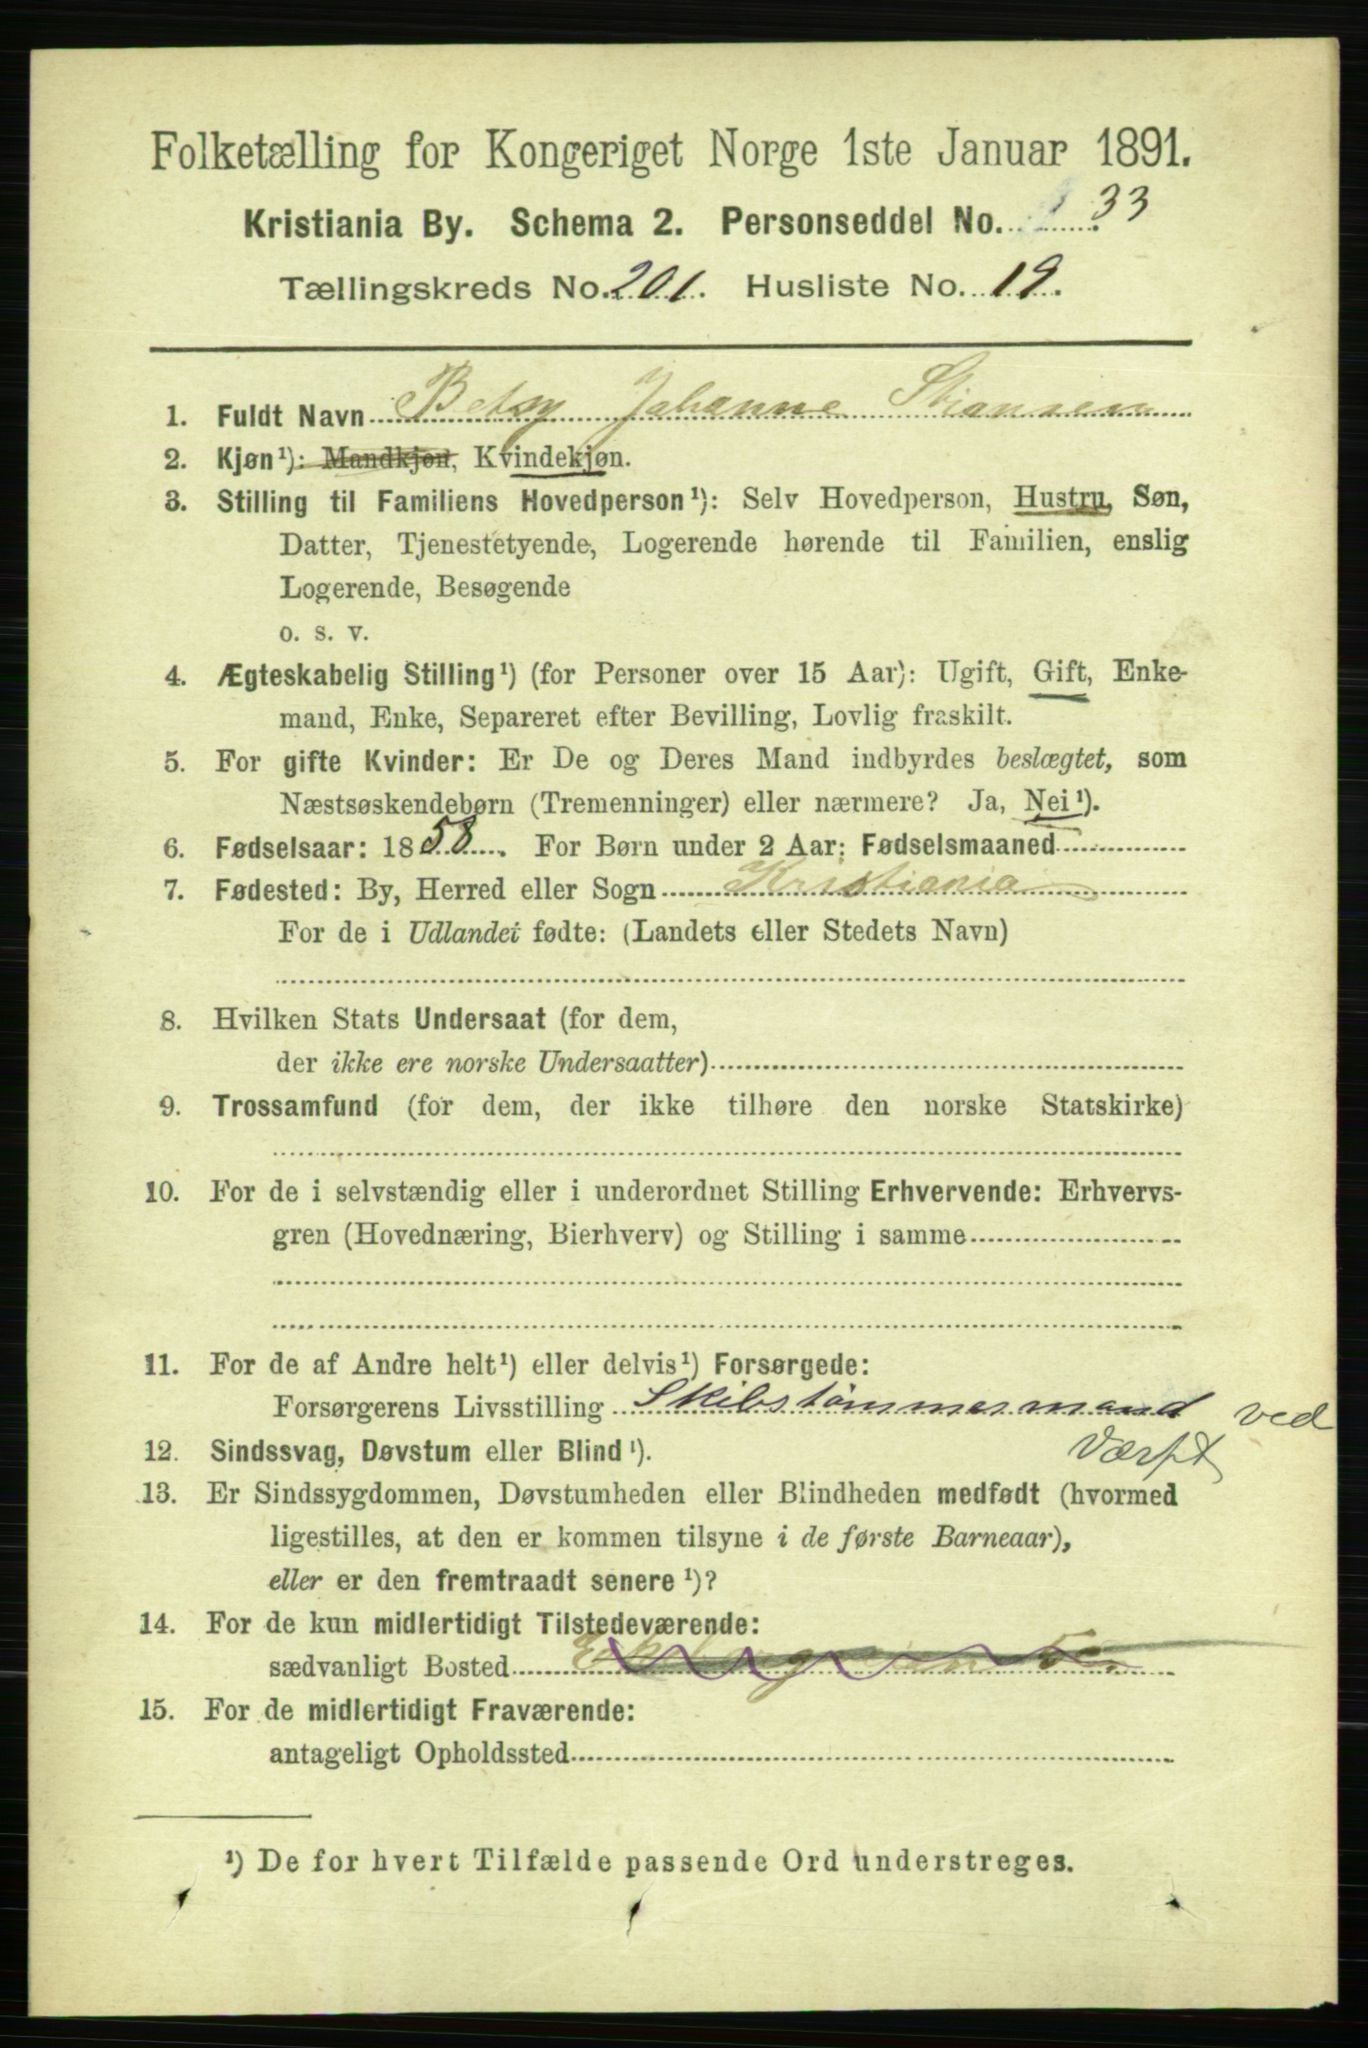 Folketælling for Kongeriget Norge 1ste Januar 1891.
Kristiania By. Schema 2. Personseddel No. 33
Tællingskreds No. 201. Husliste No. 19.
1. Fuldt Navn Betsy Johanne
2. Kjøn¹): Mandkjøn, Kvindekjøn.
3. Stilling til Familiens Hovedperson¹): Selv Hovedperson, Hustru, Søn,
Datter, Tjenestetyende, Logerende hørende til Familien, enslig
Logerende, Besøgende
o. s. v.
4. Ægteskabelig Stilling¹) (for Personer over 15 Aar): Ugift, Gift, Enke-
mand, Enke, Separeret efter Bevilling, Lovlig fraskilt.
5. For gifte Kvinder: Er De og Deres Mand indbyrdes beslægtet, som
Næstsøskendebørn (Tremenninger) eller nærmere? Ja, Nei¹).
6. Fødselsaar: 1858. For Børn under 2 Aar: Fødselsmaaned
7. Fødested: By, Herred eller Sogn Kristiania
For de i Udlandet fødte: (Landets eller Stedets Navn)
8. Hvilken Stats Undersaat (for dem,
der ikke ere norske Undersaatter)
9. Trossamfund (for dem, der ikke tilhøre den norske Statskirke)
10. For de i selvstændig eller i underordnet Stilling Erhvervende: Erhvervs-
gren (Hovednæring, Bierhverv) og Stilling i samme
11. For de af Andre helt¹) eller delvis¹) Forsørgede:
Forsørgerens Livsstilling Skibstømmermand ved
Værft
12. Sindssvag, Døvstum eller Blind¹).
13. Er Sindssygdommen, Døvstumheden eller Blindheden medfødt (hvormed
ligestilles, at den er kommen tilsyne i de første Barneaar),
eller er den fremtraadt senere¹)?
14. For de kun midlertidigt Tilstedeværende:
sædvanligt Bosted
15. For de midlertidigt Fraværende:
antageligt Opholdssted
¹) De for hvert Tilfælde passende Ord understreges.